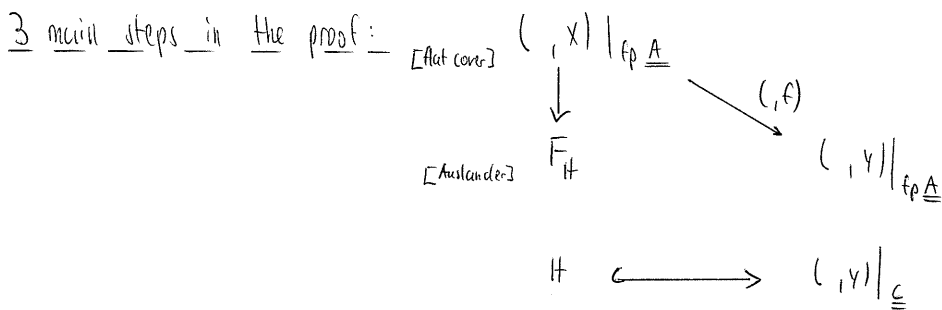 3 main steps in the proof:
[flat cover] ( , X)|fp A
( , f)
[Auslander] F_H
( , Y)|fp A
H ( , Y)|C